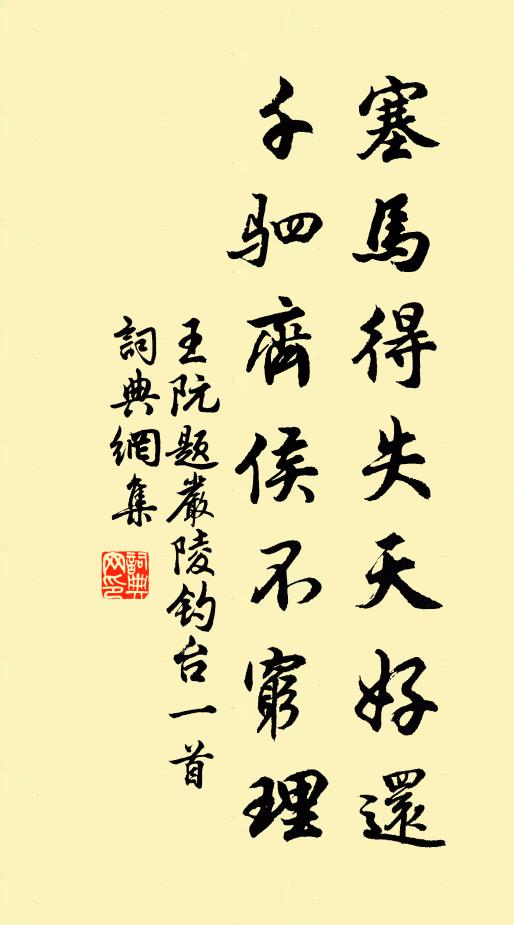 塞馬得失天好還
千驷齊侯不窮理
王阮题嚴陵钓台一首
詞典網集
詞典网印